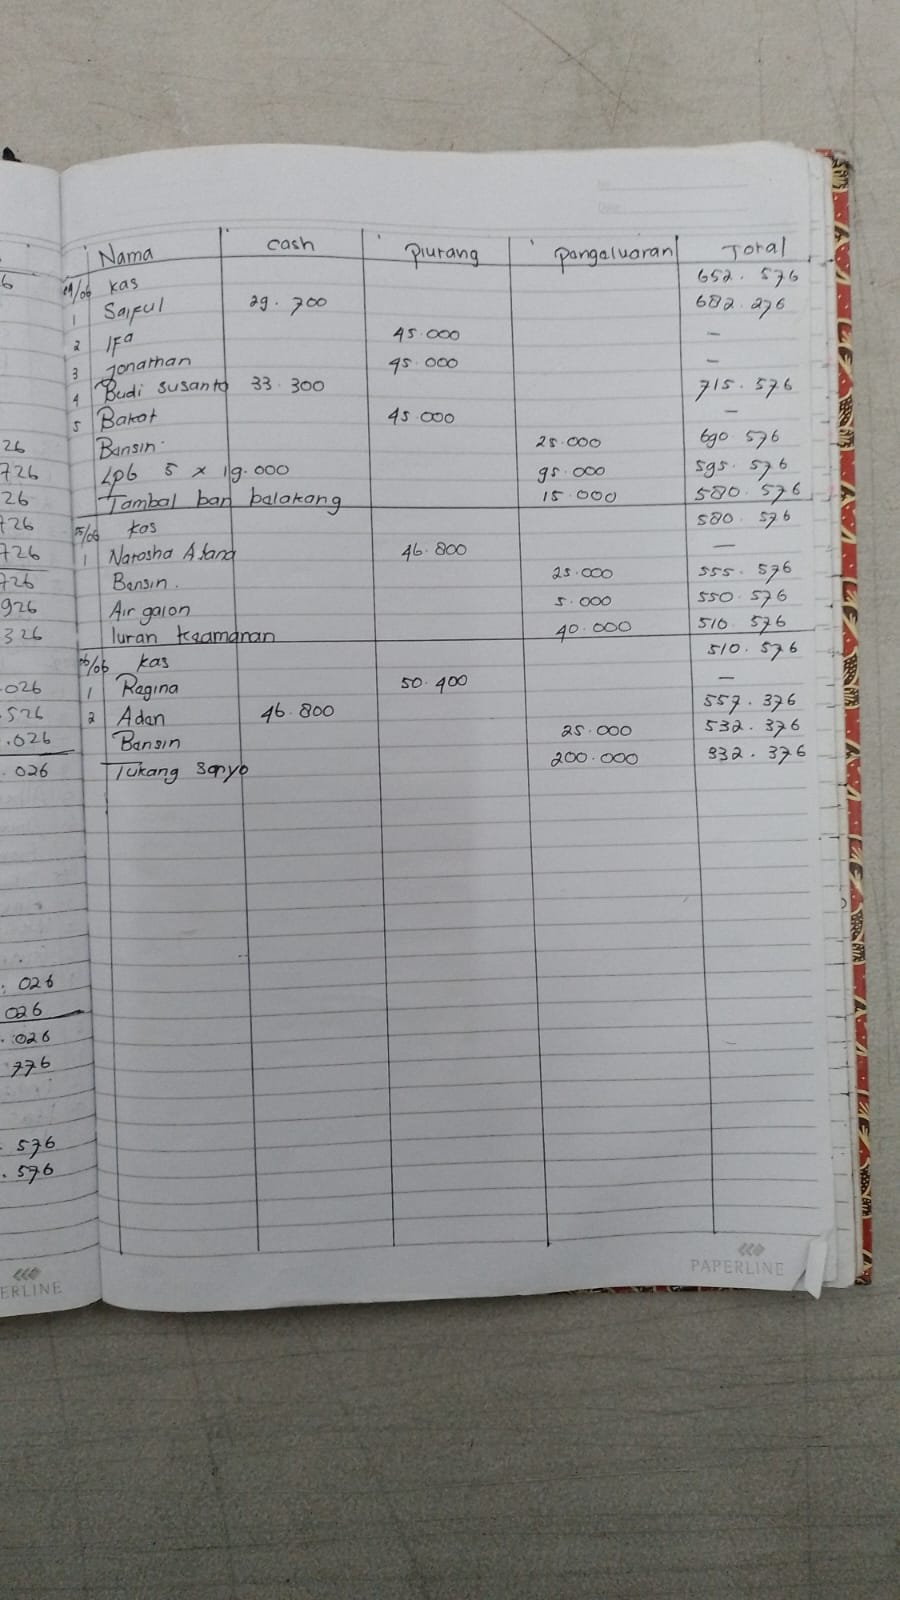 Nama cash piutang pengeluaran Total
04/06 kas 652.576
1 Saiful 29.700 682.276
2 Ifa 45.000 -
3 Jonathan 45.000 -
4 Budi susanto 33.300 715.576
5 Bakot 45.000 -
Bensin 25.000 690.576
Lpg 5 x 19.000 95.000 595.576
Tambal ban belakang 15.000 580.576
05/06 kas 580.576
1 Natasha 46.800 -
Bensin. 25.000 555.576
Air galon 5.000 550.576
Iuran keamanan 40.000 510.576
06/06 kas 510.576
1 Regina 50.400 -
2 Aden 46.800 557.376
Bensin 25.000 532.376
Tukang sanyo 200.000 332.376
PAPERLINE
6
26
726
26
726
726
726
926
326
.026
.526
.026
.026
.026
026
.026
776
.576
.576
ERLINE